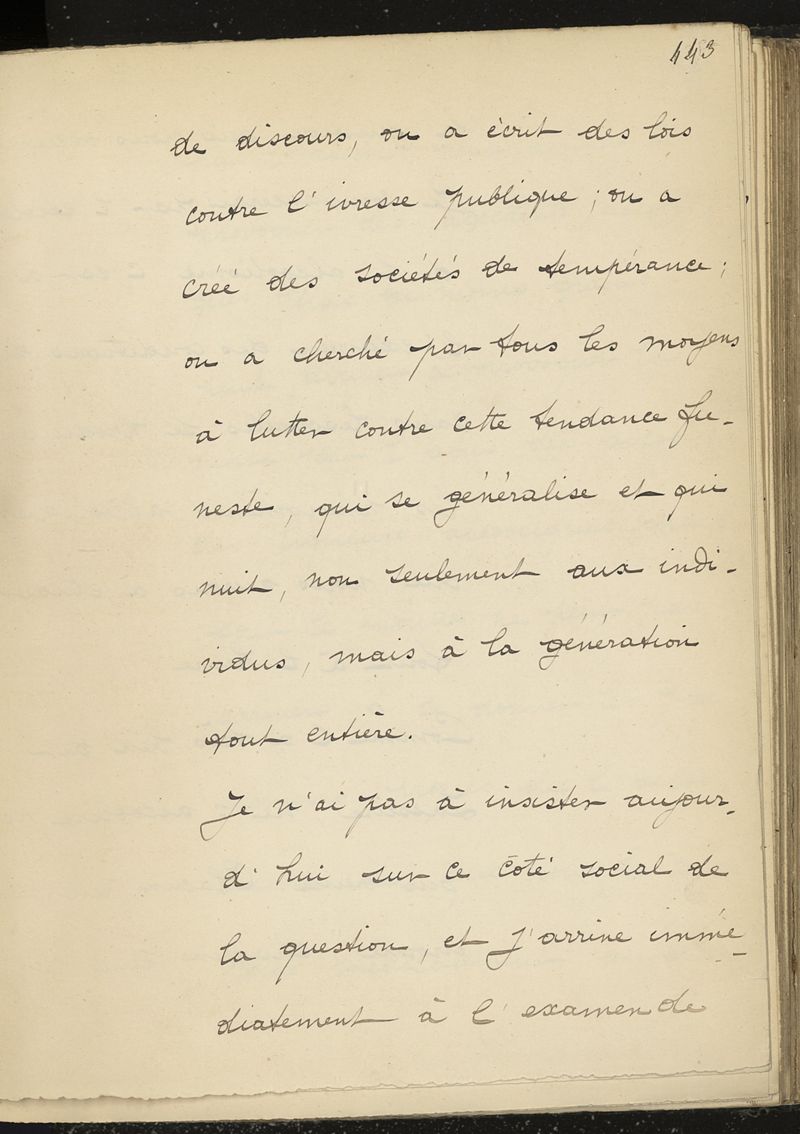 443
de discours, on a écrit des lois
contre l'ivresse publique ; on a
créé des sociétés de tempérance ;
on a cherché par tous les moyens
à lutter contre cette tendance fu-
neste, qui se généralise et qui
nuit, non seulement aux indi-
vidus, mais à la génération
tout entière.
Je n'ai pas à insister aujour-
d'hui sur ce côté social de
la question, et j'arrive immé-
diatement à l'examen de